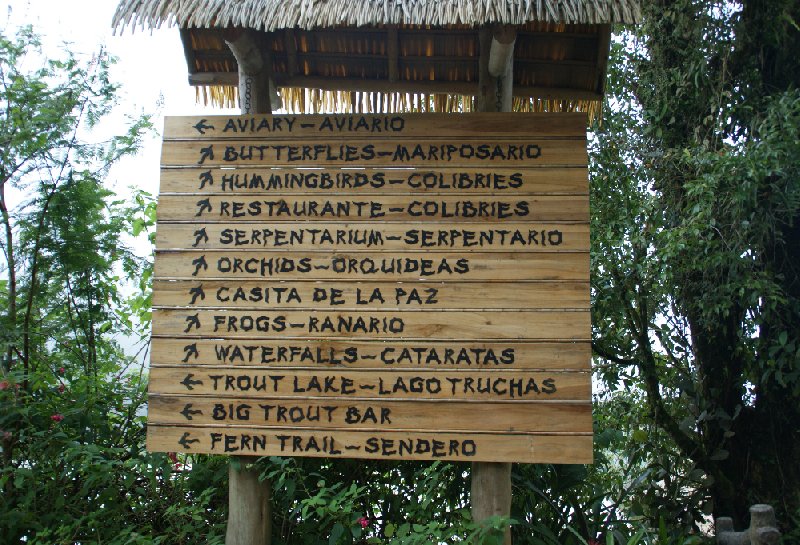 ← AVIARY – AVIARIO
↗ BUTTERFLIES – MARIPOSARIO
↗ HUMMINGBIRDS – COLIBRIES
↗ RESTAURANTE – COLIBRIES
↗ SERPENTARIUM – SERPENTARIO
↗ ORCHIDS – ORQUIDEAS
↗ CASITA DE LA PAZ
↗ FROGS – RANARIO
↗ WATERFALLS – CATARATAS
← TROUT LAKE – LAGO TRUCHAS
← BIG TROUT BAR
← FERN TRAIL – SENDERO